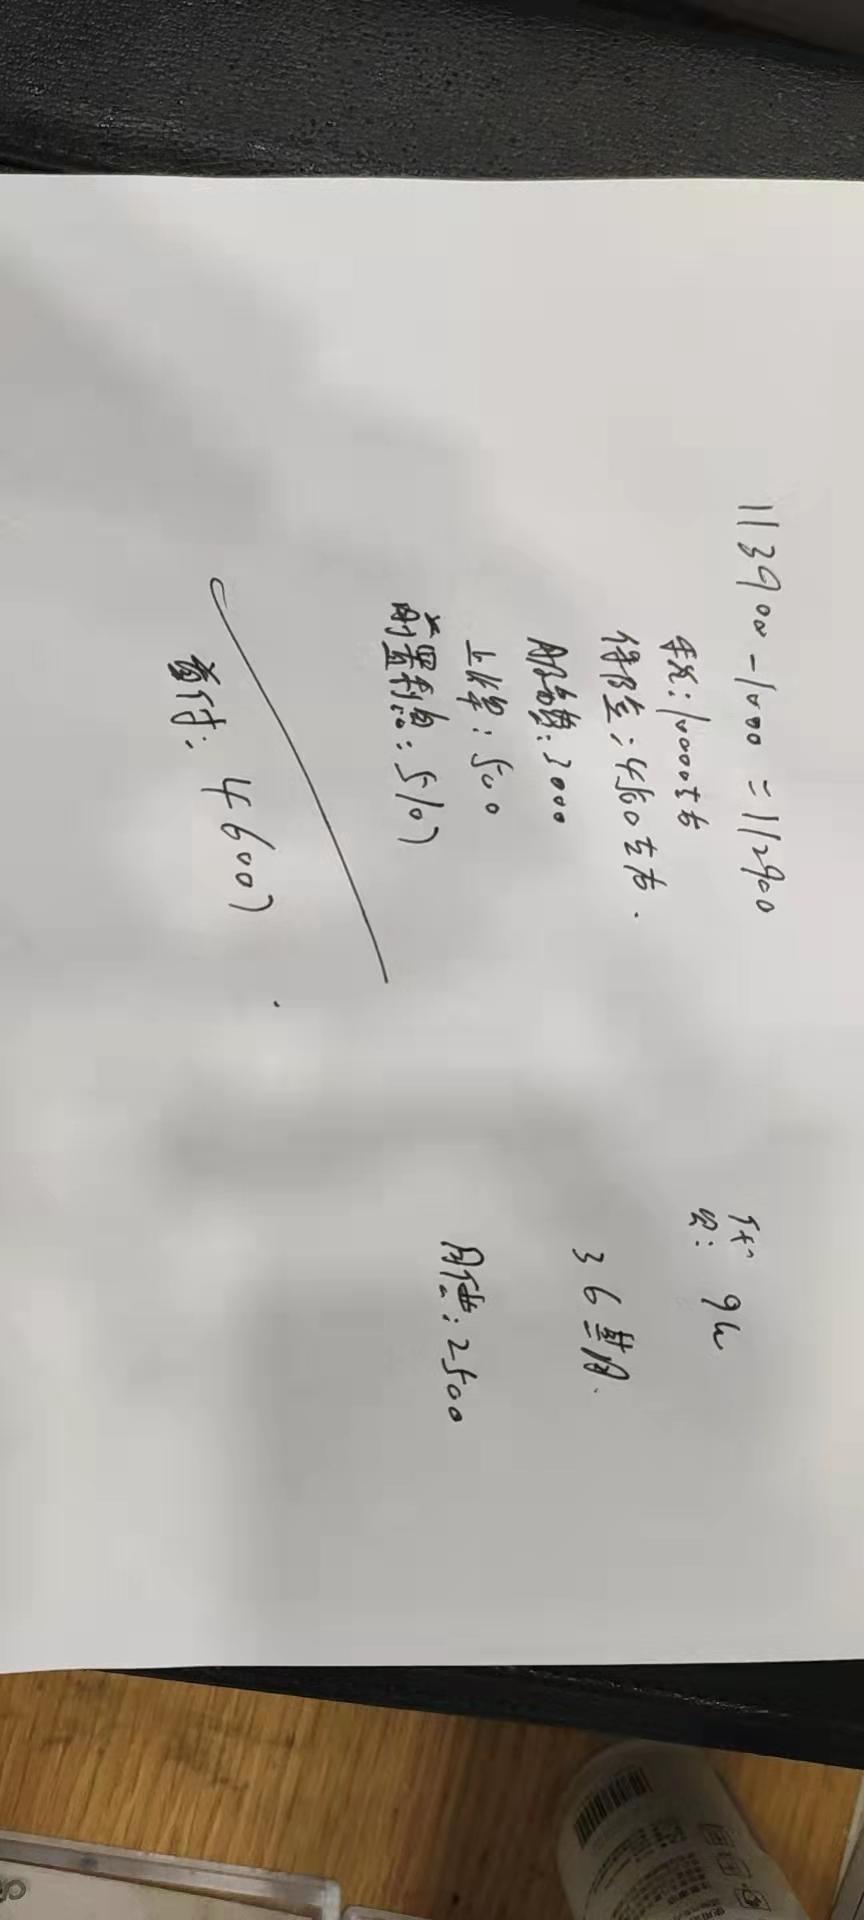 113900-1000=112900
车税:10000左右
保险:4500左右.
服务费:3000
上牌:500
前置利息:5107
首付:46007
贷: 9w
36期.
月供:2500